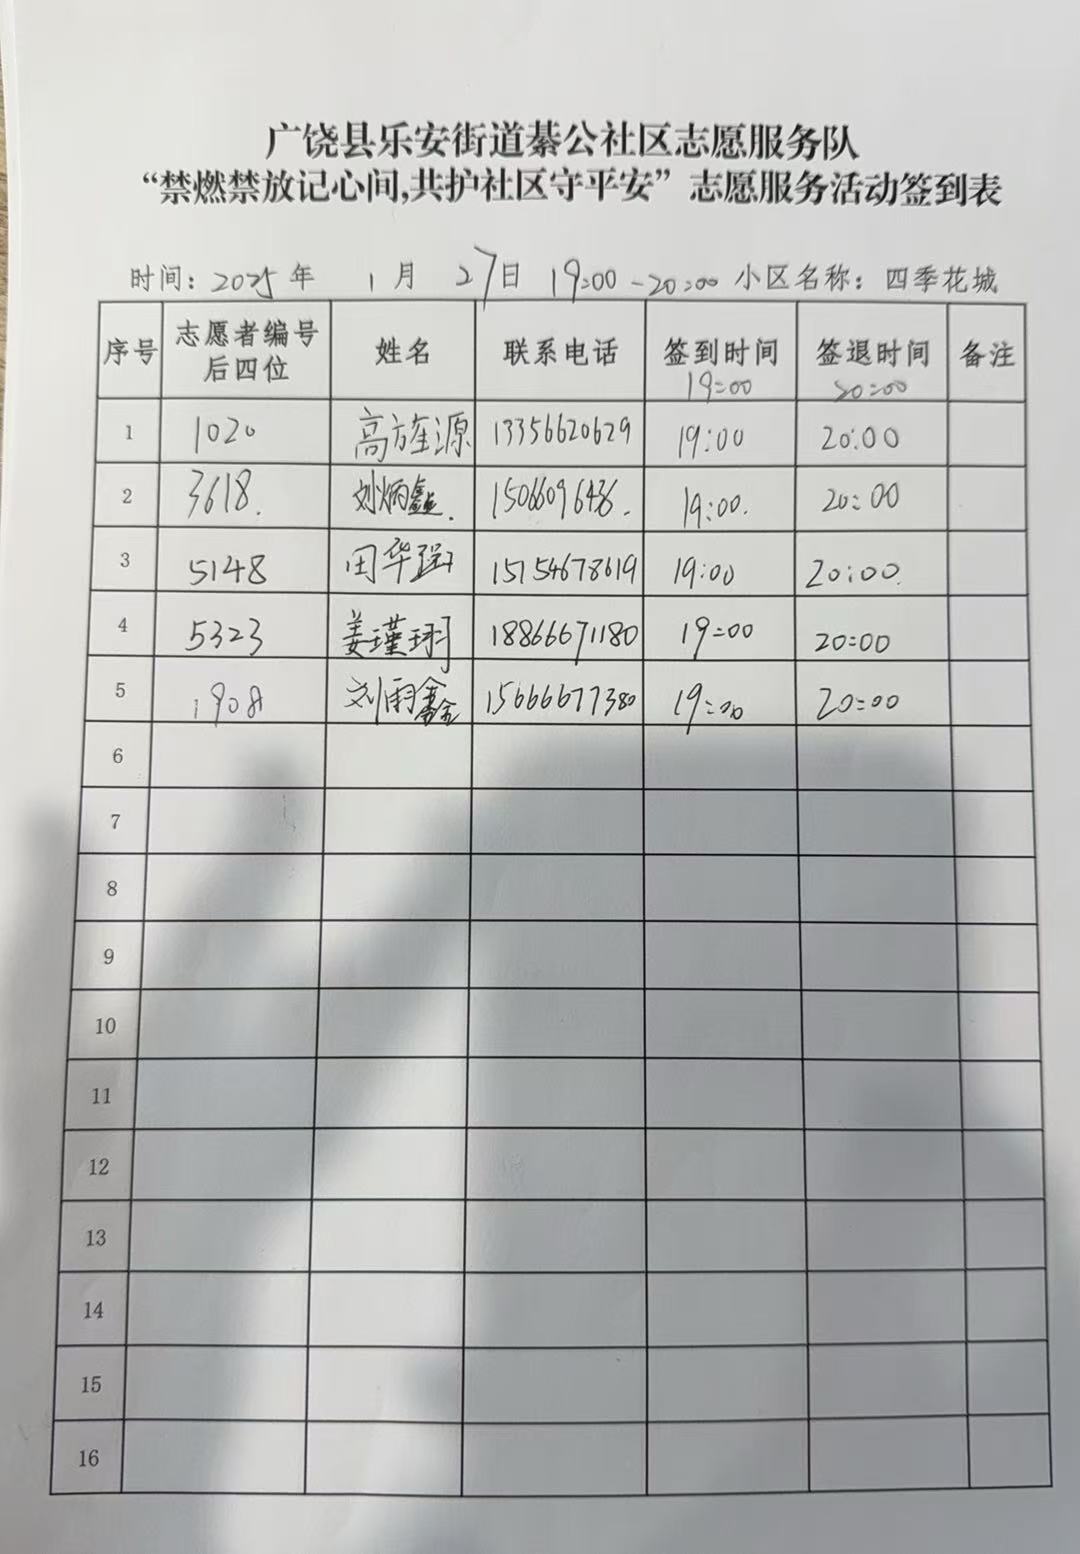 广饶县乐安街道綦公社区志愿服务队
“禁燃禁放记心间,共护社区守平安”志愿服务活动签到表
时间：2025年 1月 27日 19:00-20:00 小区名称：四季花城
序号 志愿者编号后四位 姓名 联系电话 签到时间 19:00 签退时间 20:00 备注
1 1020 高旌源 13356620629 19:00 20:00
2 3618. 刘炳鑫. 15066096436. 19:00. 20:00
3 5148 田华强 15154678619 19:00 20:00.
4 5323 姜瑾珝 18866671180 19:00 20:00
5 1908 刘雨鑫 15666677380 19:00 20:00
6
7
8
9
10
11
12
13
14
15
16